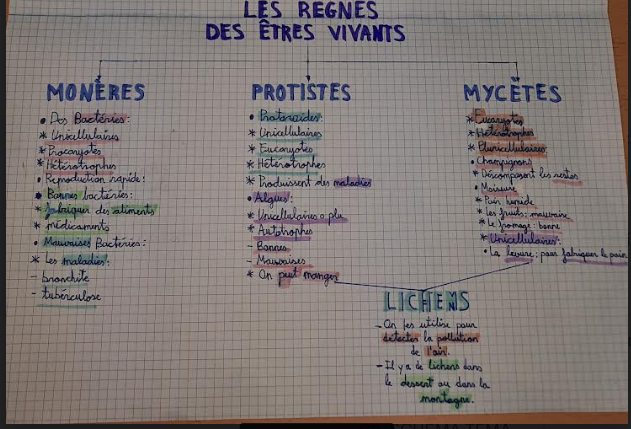 LES REGNES
DES ÊTRES VIVANTS
MONÈRES
• Des Bactéries:
* Unicellulaires
* Procaryotes
* Hétérotrophes
• Reproduction rapide!
• Bonnes bactéries:
* fabriquer des aliments
* médicaments
• Mauvaises Bactéries:
* Les maladies:
- bronchite
- tubérculose
PROTISTES
• Protozoïdes:
* Unicellulaires
* Eucaryotes
* Hétérotrophes
* Produissent des maladies
• Algues:
* Unicellulaires o plu
* Autotrophes
- Bonnes
- Mauvaises
* On peut manger
MYCÈTES
* Eucaryotes
* Hétérotrophes
* Pluricellulaires
• Champignons
* Décomposent les restes
• Moisure
* Pain humide
* Les fruits: mauvaise
* Le fromage: bonne
* Unicellulaires:
• La levure: pour fabriquer le pain
LICHENS
- On les utilise pour
détecter la pollution
de l'air.
- Il y a de lichens dans
le dessert ou dans la
montagne.